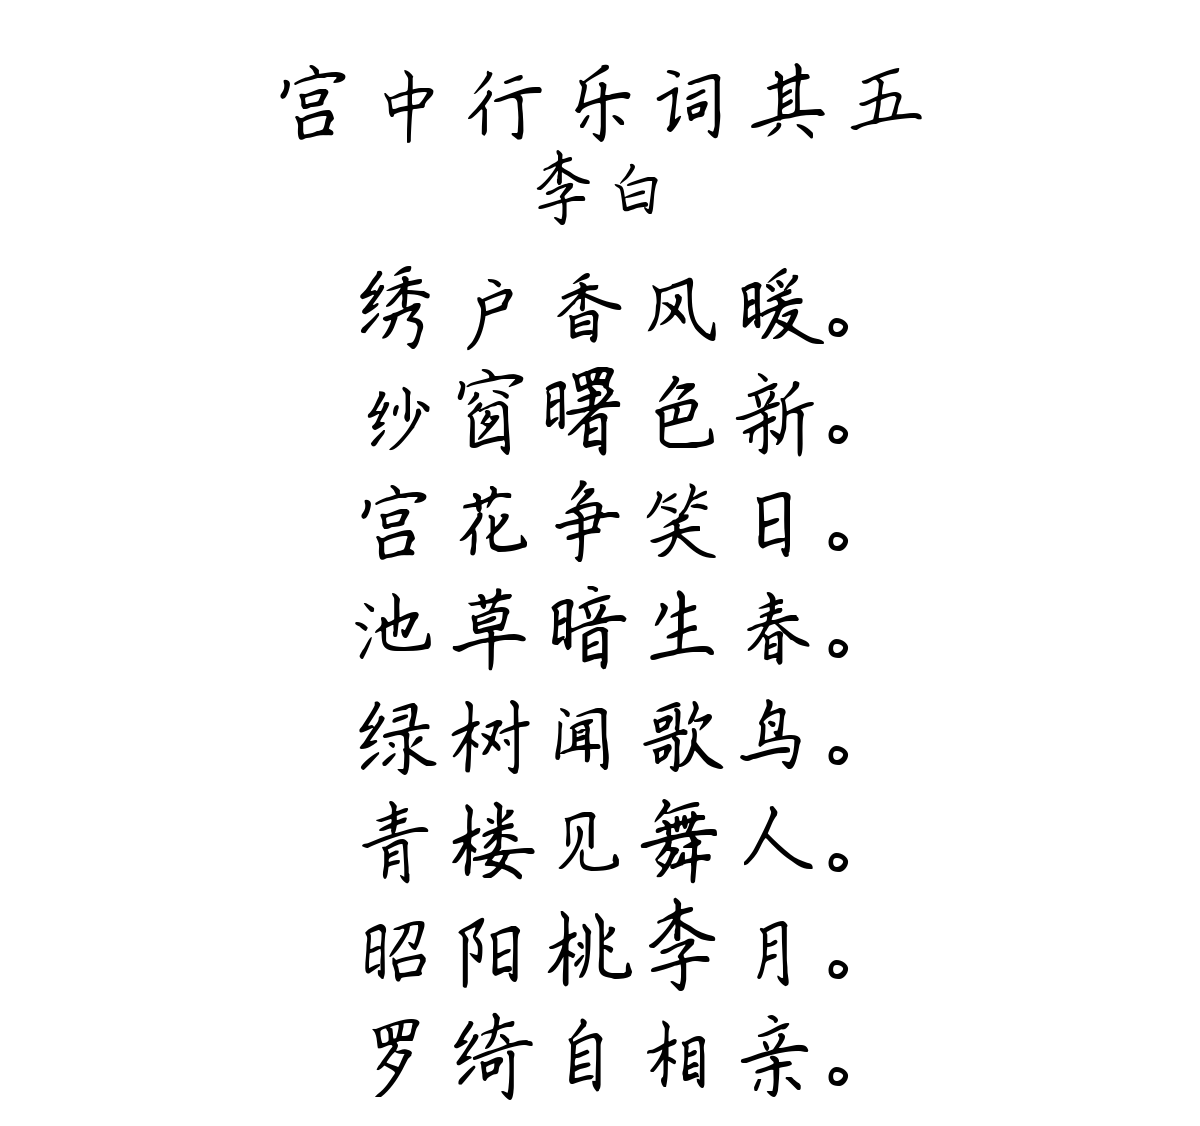 宫中行乐词其五
李白
绣户香风暖。
纱窗曙色新。
宫花争笑日。
池草暗生春。
绿树闻歌鸟。
青楼见舞人。
昭阳桃李月。
罗绮自相亲。